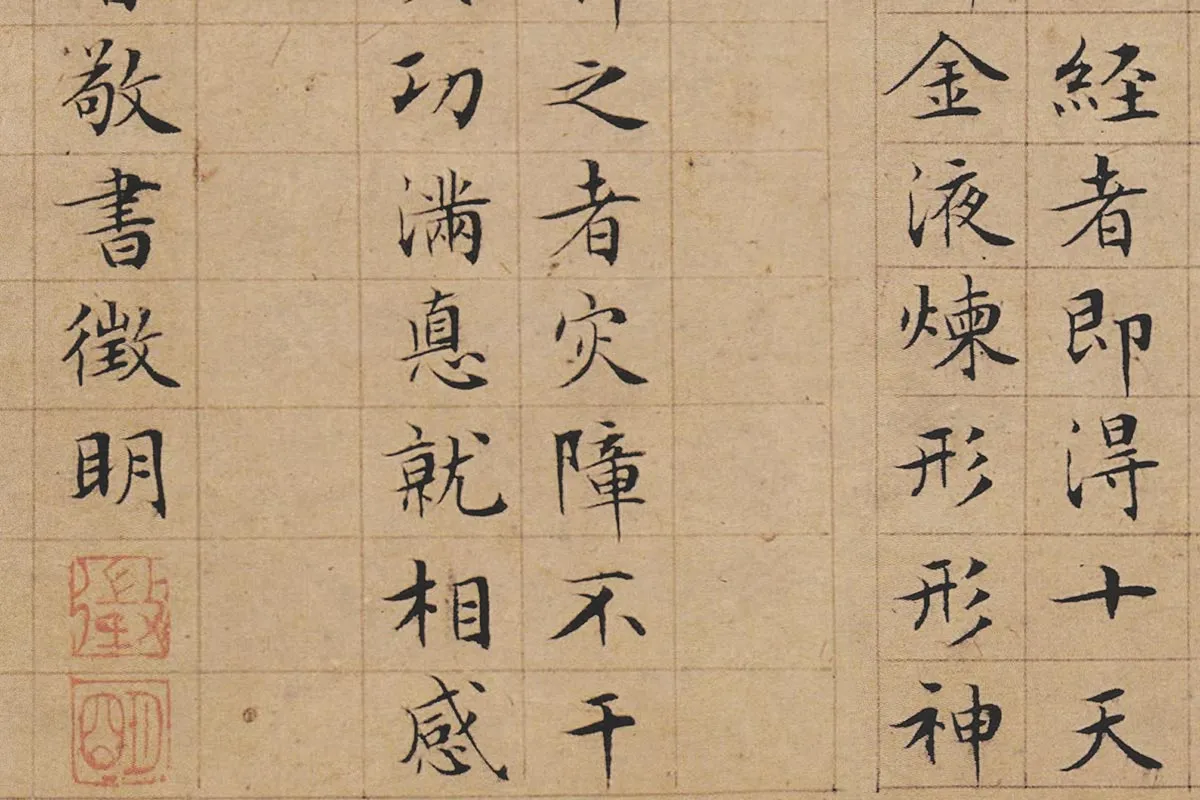 経者即得十天
金液煉形形神
之者灾障不干
功满悳就相感
敬書徵明
徵
明